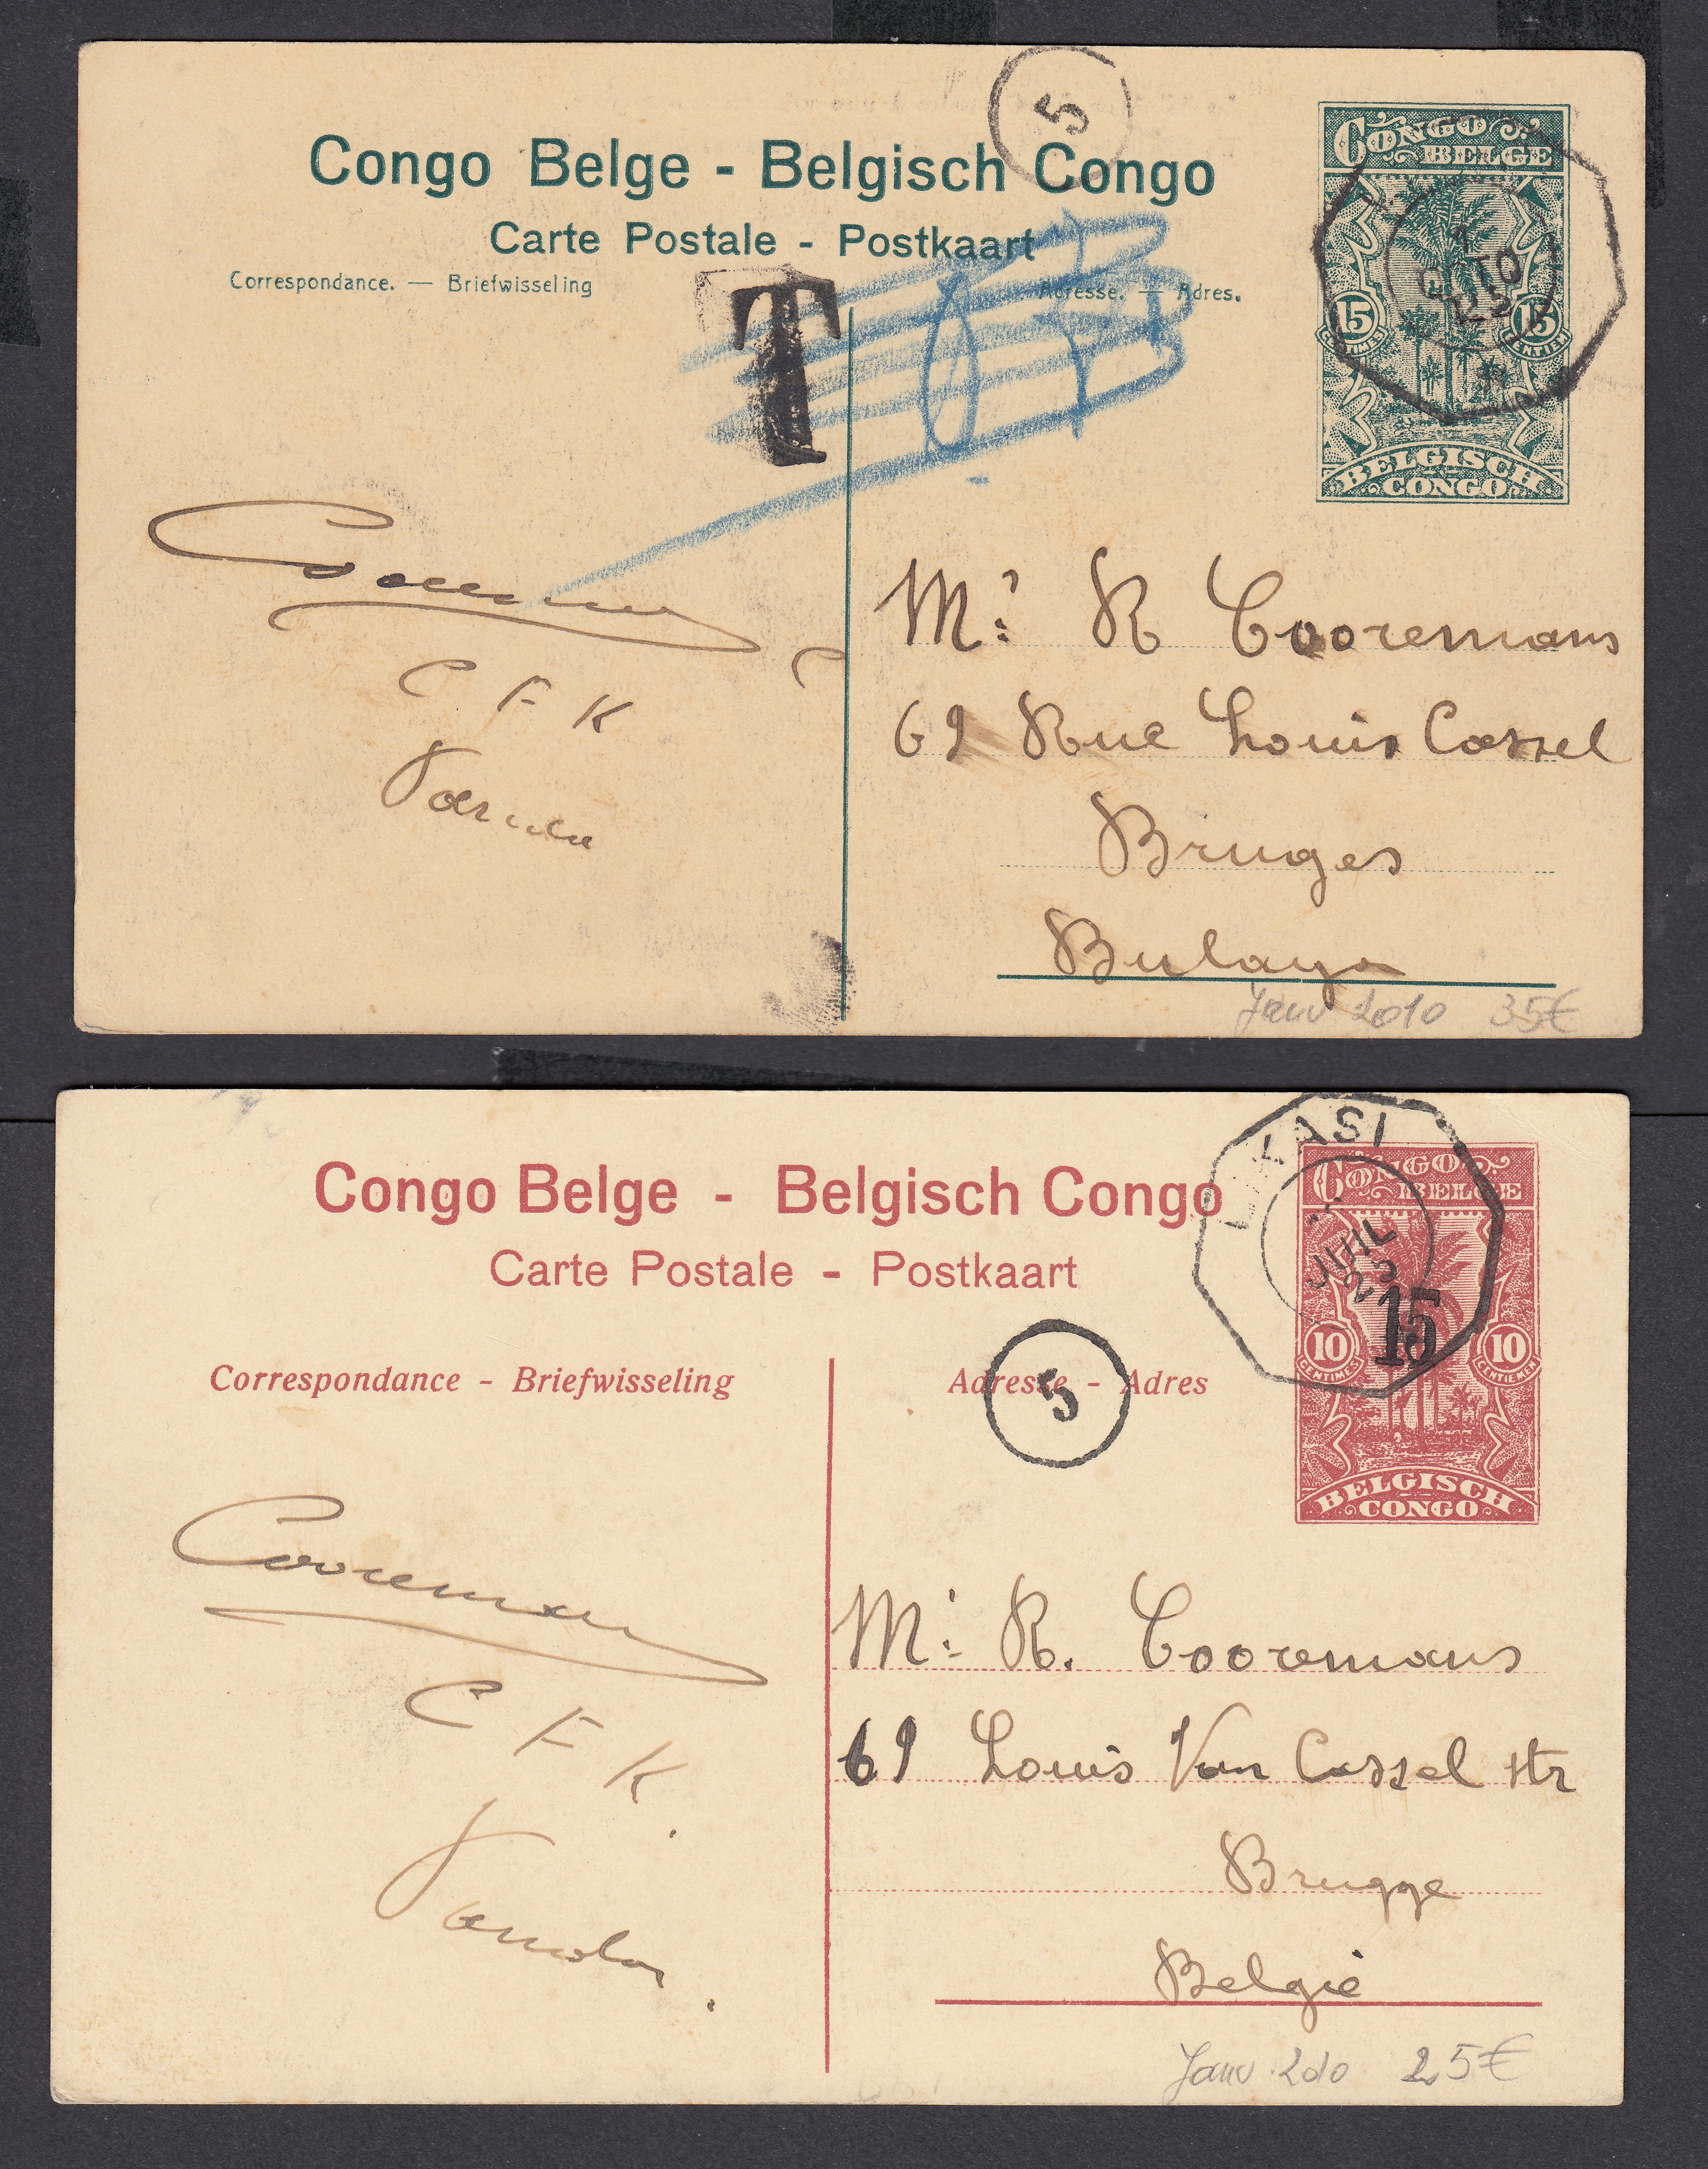 5
Congo Belge - Belgisch Congo
Carte Postale - Postkaart
Correspondance. — Briefwisseling
Adresse. — Adres.
CONGO BELGE
15 CENTIMES
15 CENTIEM
BELGISCH CONGO
OCTO
25
T
C F K
Mr R Cooremans
69 Rue Louis Cassel
Bruges
Janv 2010 35€
LIKASI
JUIL
25
Congo Belge - Belgisch Congo
Carte Postale - Postkaart
CONGO BELGE
15
10 CENTIMES
10 CENTIEMEN
BELGISCH CONGO
Correspondance - Briefwisseling
Adresse - Adres
5
Cooremans
C F K.
Mr R. Cooremans
69 Louis Van Cassel str
Brugge
België
Janv 2010 25€